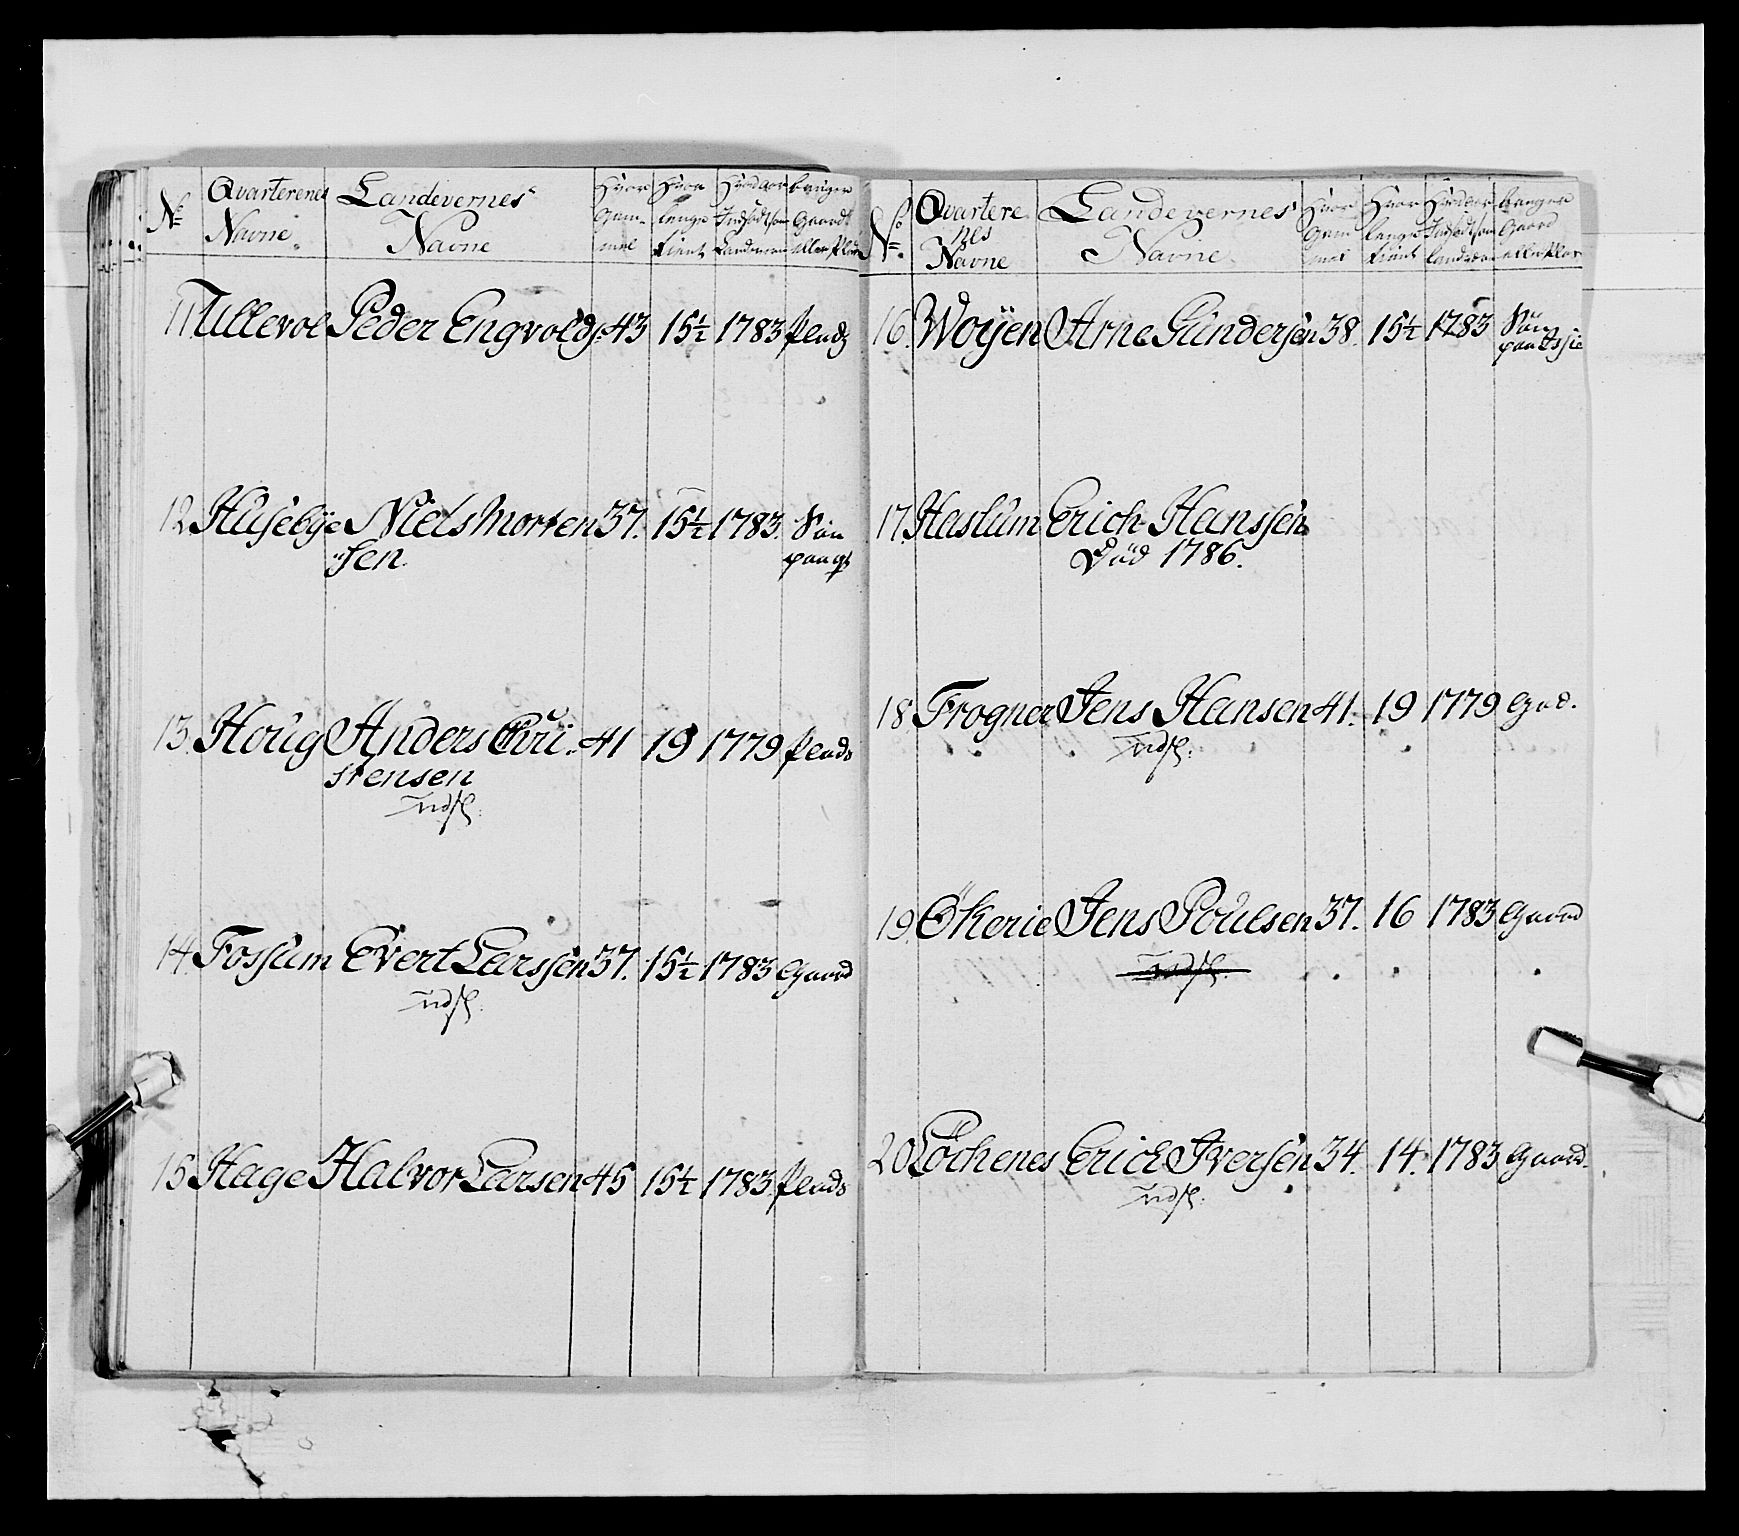 No Qvarterenes Navne. Landevernes Navne Hvor Gam- mel Hvor lenge tient Hvad Aar Indsadt som Landevern bruger Gaard eller Plads
11 Ullevol Peder Engvolds: 43 15½ 1783 Plads
12. Husebye Niels Morten 37. 15½ 1783. Søn
sen. paa
13. Houg Anders Chri- 41 19 1779 Plads
stensen
udsl:
14. Fossum Evert Larssen 37. 15½ 1783 Gaard
udsl:
15. Hage Halvor Larsen 45 15½ 1783. Plads
No. Qvartere nes Navne Landevernes Navne Hvor Gam mel Hvor lenge tient Hvad Aar Indsadt som Landvern bruger Gaard eller Plads
16. Woÿen Arne Gundersen 38. 15½ 1783 Søn
paa
17. Haslum Erich Hanssen
Død 1786.
18. Frogner Jens Hansen 41. 19 1779 Gad.
udsl:
19. Økerie Jens Poulsen 37. 16 1783 Gaard
udsl:
20. Løchenes Erich Iversen 34. 14. 1783 Gaard.
udsl: